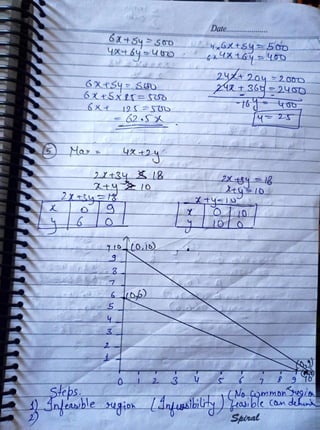 Date
6x+5y=500
4x+6y=400
4×6x+5y=500
6×4x+6y=400
24x+20y=2000
24x+36y=2400
-16y = 400
y=25
6x+5y=500
6x+5×25=500
6x+125=500
=62.5x
⑤ Max = 4x+2y
2x+3y ≤ 18
x+y ≥ 10
2x+3y=18
x+y=10
2x+3y=18
x 0 9
y 6 0
x+y=10
x 0 10
y 10 0
y 10 (0,10)
9
8
7
6 (0,6)
5
4
3
2
1
0 1 2 3 4 5 6 7 8 9 10
Steps.
(No common region
1) Infeasible region (Infeasibility) feasible can
2)
Spiral